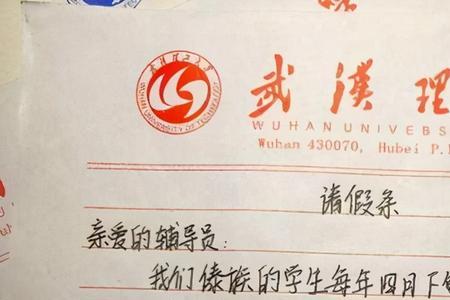 武汉理工大学
WUHAN UNIVERSITY OF TECHNOLOGY
武漢理
WUHAN UNIVERS
Wuhan 430070, Hubei P.
请假条
亲爱的辅导员:
我们傣族的学生每年四月下